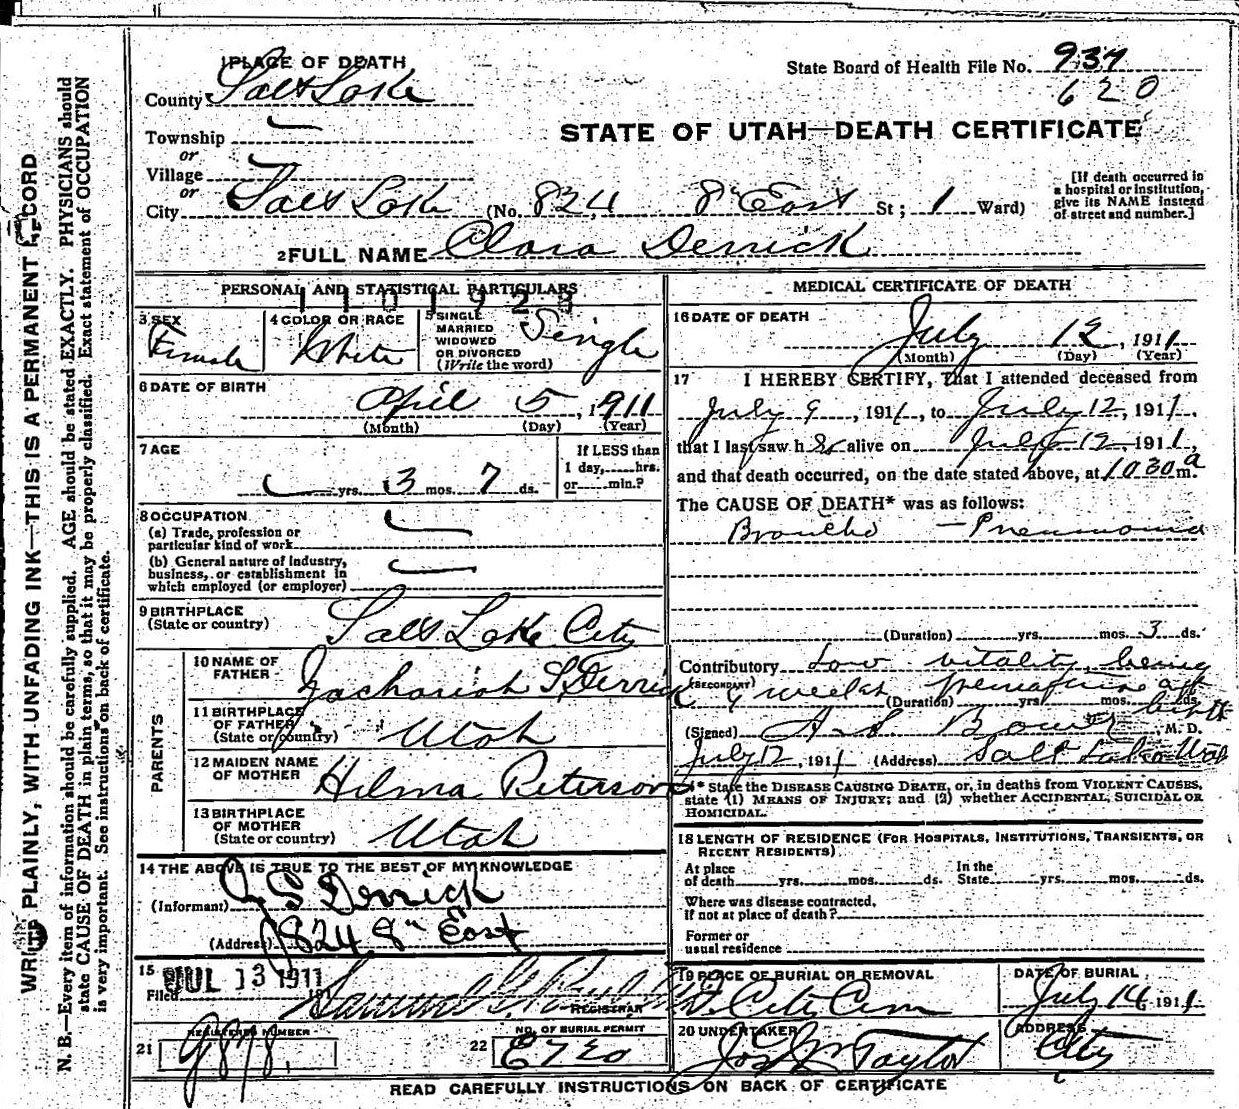 1 PLACE OF DEATH
County Salt Lake
Township
or
Village
or
City Salt Lake (No. 824 8th East St; 1 Ward)
State Board of Health File No. 937
620
STATE OF UTAH—DEATH CERTIFICATE
[If death occurred in
a hospital or institution,
give its NAME instead
of street and number.]
2 FULL NAME Clara Derrick
PERSONAL AND STATISTICAL PARTICULARS
1101928
3 SEX
Female
4 COLOR OR RACE
White
5 SINGLE
MARRIED
WIDOWED
OR DIVORCED
(Write the word)
Single
6 DATE OF BIRTH
April 5, 1911
(Month) (Day) (Year)
7 AGE
yrs. 3 mos. 7 ds.
If LESS than
1 day, hrs.
or min.?
8 OCCUPATION
(a) Trade, profession or
particular kind of work
(b) General nature of industry,
business, or establishment in
which employed (or employer)
9 BIRTHPLACE
(State or country)
Salt Lake City
PARENTS
10 NAME OF
FATHER
Zachariah S Derrick
11 BIRTHPLACE
OF FATHER
(State or country)
Utah
12 MAIDEN NAME
OF MOTHER
Hilma Peterson
13 BIRTHPLACE
OF MOTHER
(State or country)
Utah
14 THE ABOVE IS TRUE TO THE BEST OF MY KNOWLEDGE
(Informant) Z S Derrick
(Address) 824 8th East
15
Filed JUL 13 1911
REGISTRAR
REGISTERED NUMBER
21
NO. OF BURIAL PERMIT
22 E720
MEDICAL CERTIFICATE OF DEATH
16 DATE OF DEATH
July 12, 1911
(Month) (Day) (Year)
17 I HEREBY CERTIFY, That I attended deceased from
July 9, 1911, to July 12, 1911,
that I last saw her alive on July 12 1911,
and that death occurred, on the date stated above, at 1030 a m.
The CAUSE OF DEATH* was as follows:
Broncho-Pneumonia
(Duration) yrs. mos. 3 ds.
Contributory Low vitality being
(SECONDARY) weeks premature at
birth
(Duration) yrs. mos. ds.
(Signed) A. S. Bower, M. D.
July 12, 1911 (Address) Salt Lake Utah
* State the DISEASE CAUSING DEATH, or, in deaths from VIOLENT CAUSES,
state (1) MEANS OF INJURY; and (2) whether ACCIDENTAL, SUICIDAL OR
HOMICIDAL.
18 LENGTH OF RESIDENCE (FOR HOSPITALS, INSTITUTIONS, TRANSIENTS, OR
RECENT RESIDENTS).
At place
of death yrs. mos. ds.
In the
State yrs. mos. ds.
Where was disease contracted,
if not at place of death?
Former or
usual residence
19 PLACE OF BURIAL OR REMOVAL
City Cem
DATE OF BURIAL
July 14 1911
20 UNDERTAKER
Jos Wm Taylor
ADDRESS
City
READ CAREFULLY INSTRUCTIONS ON BACK OF CERTIFICATE
WRITE PLAINLY, WITH UNFADING INK—THIS IS A PERMANENT RECORD
N. B.—Every item of information should be carefully supplied. AGE should be stated EXACTLY. PHYSICIANS should
state CAUSE OF DEATH in plain terms, so that it may be properly classified. Exact statement of OCCUPATION
is very important. See instructions on back of certificate.